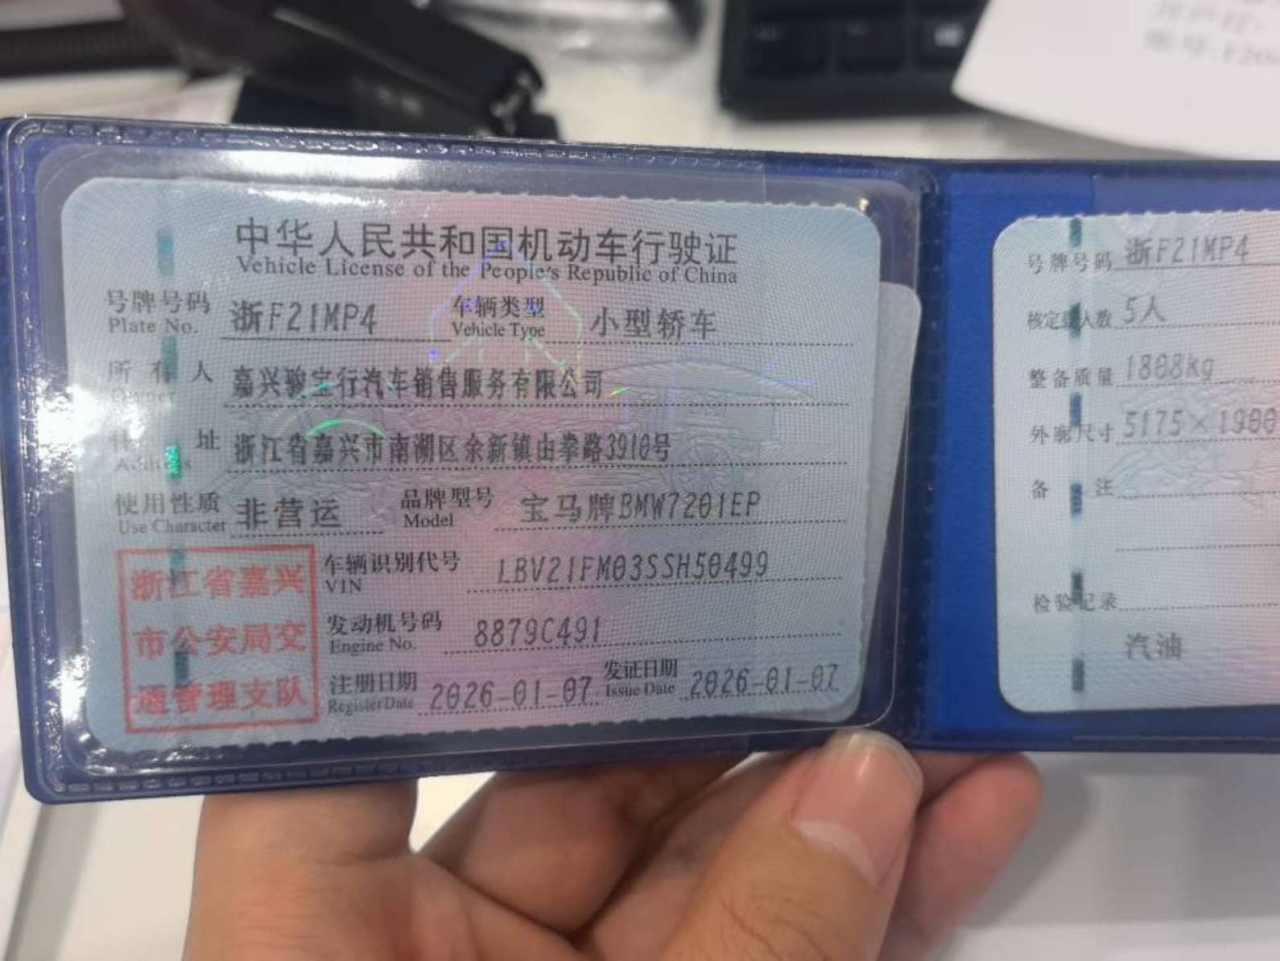 中华人民共和国机动车行驶证
Vehicle License of the People's Republic of China
号牌号码 浙F21MP4 车辆类型 小型轿车
Plate No. Vehicle Type
所有人 嘉兴骏宝行汽车销售服务有限公司
Owner
住址 浙江省嘉兴市南湖区余新镇由拳路3910号
Address
使用性质 非营运 品牌型号 宝马牌BMW7201EP
Use Character Model
车辆识别代号 LBV21FM03SSH50499
VIN
发动机号码 8879C491
Engine No.
注册日期 2026-01-07 发证日期 2026-01-07
Register Date Issue Date
浙江省嘉兴
市公安局交
通管理支队
号牌号码 浙F21MP4
核定载人数 5人
整备质量 1808kg
外廓尺寸 5175×1900
备注
检验记录
汽油